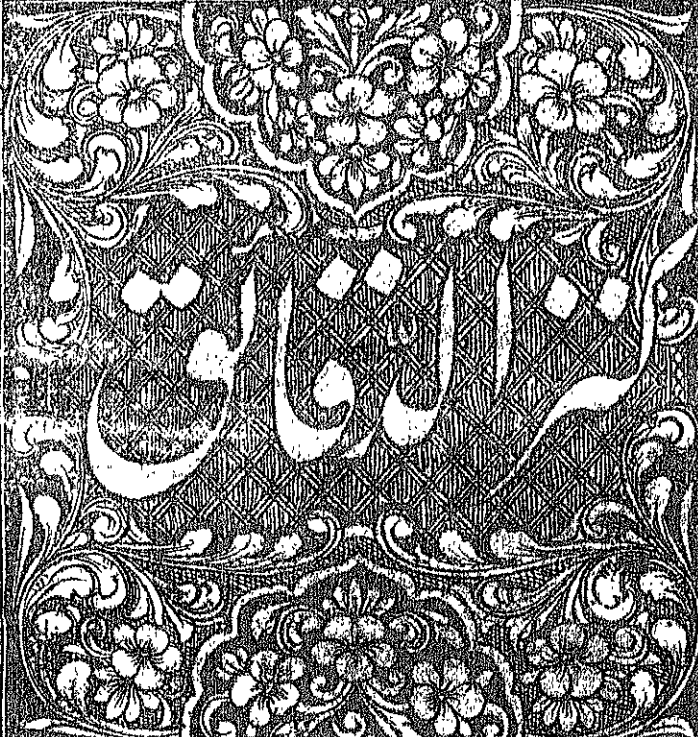 كنز الدقائق